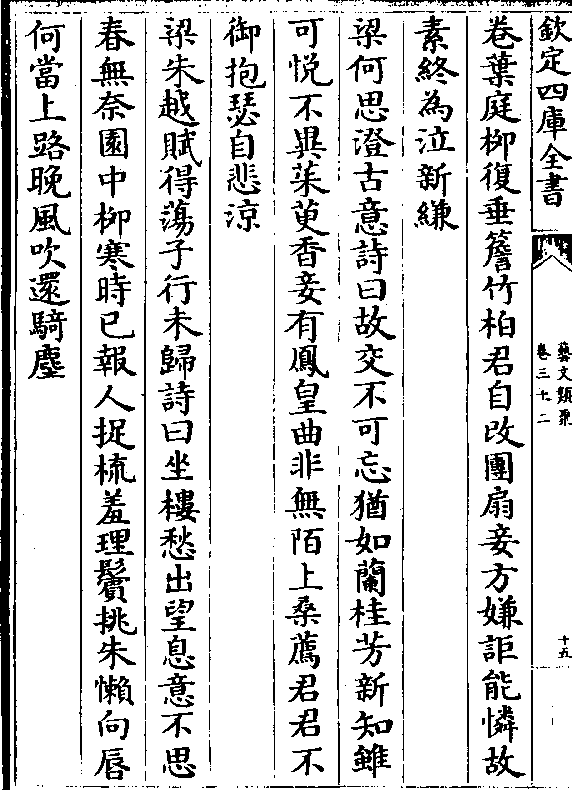 欽定四庫全書
藝文類聚
卷三十二
十五
卷葉庭柳復垂簷竹柏君自改團扇妾方嫌詎能憐故
素終為泣新縑
梁何思澄古意詩曰故交不可忘猶如蘭桂芳新知雖
可悦不異茱萸香妾有鳳皇曲非無陌上桑薦君君不
御抱瑟自悲涼
梁朱越賦得蕩子行未歸詩曰坐樓愁出望息意不思
春無奈園中柳寒時已報人捉梳羞理鬢挑朱懶向唇
何當上路晚風吹還騎塵